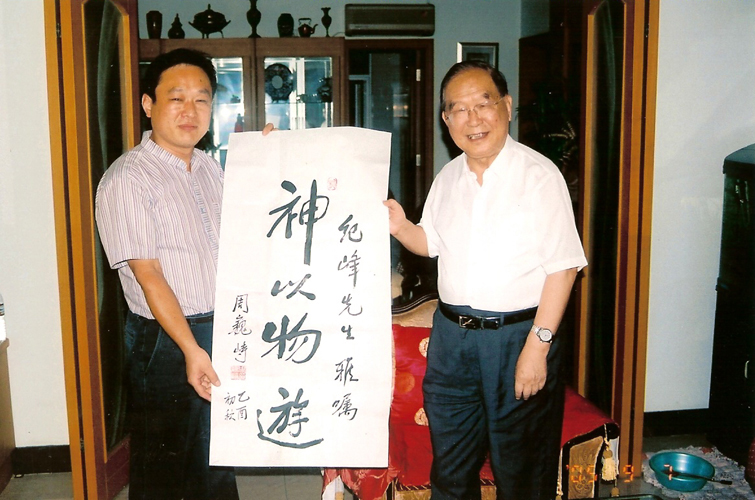 纪峰先生雅嘱
神以物遊
周巍峙
乙酉
初秋